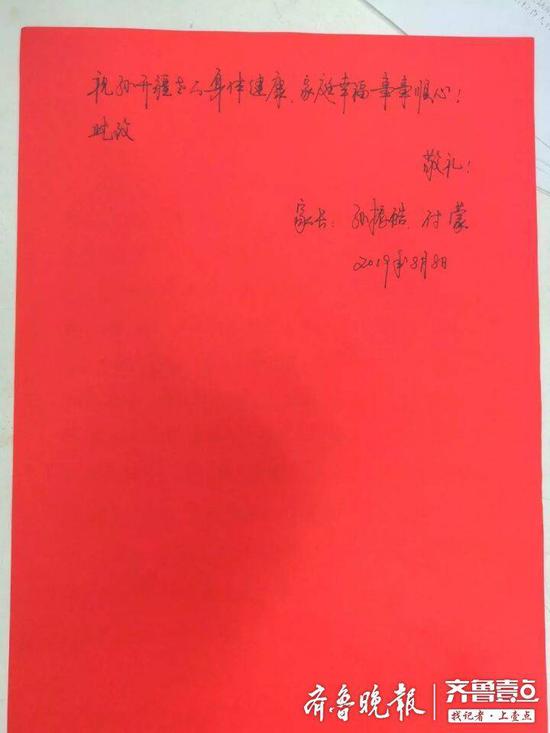 祝孙开疆老人身体健康、家庭幸福事事顺心！
此致
敬礼！
家长：孙振皓、付蒙
2019年8月8日
齐鲁晚报
齐鲁壹点
找记者·上壹点